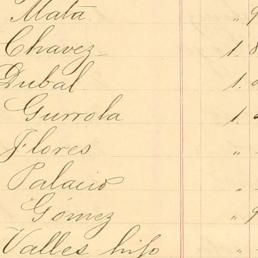 Mata " 9
Chavez 1. 8
Dubal 1.
Gurrola 1.
Flores "
Palacio "
Gómez " 9
Valles hijo "